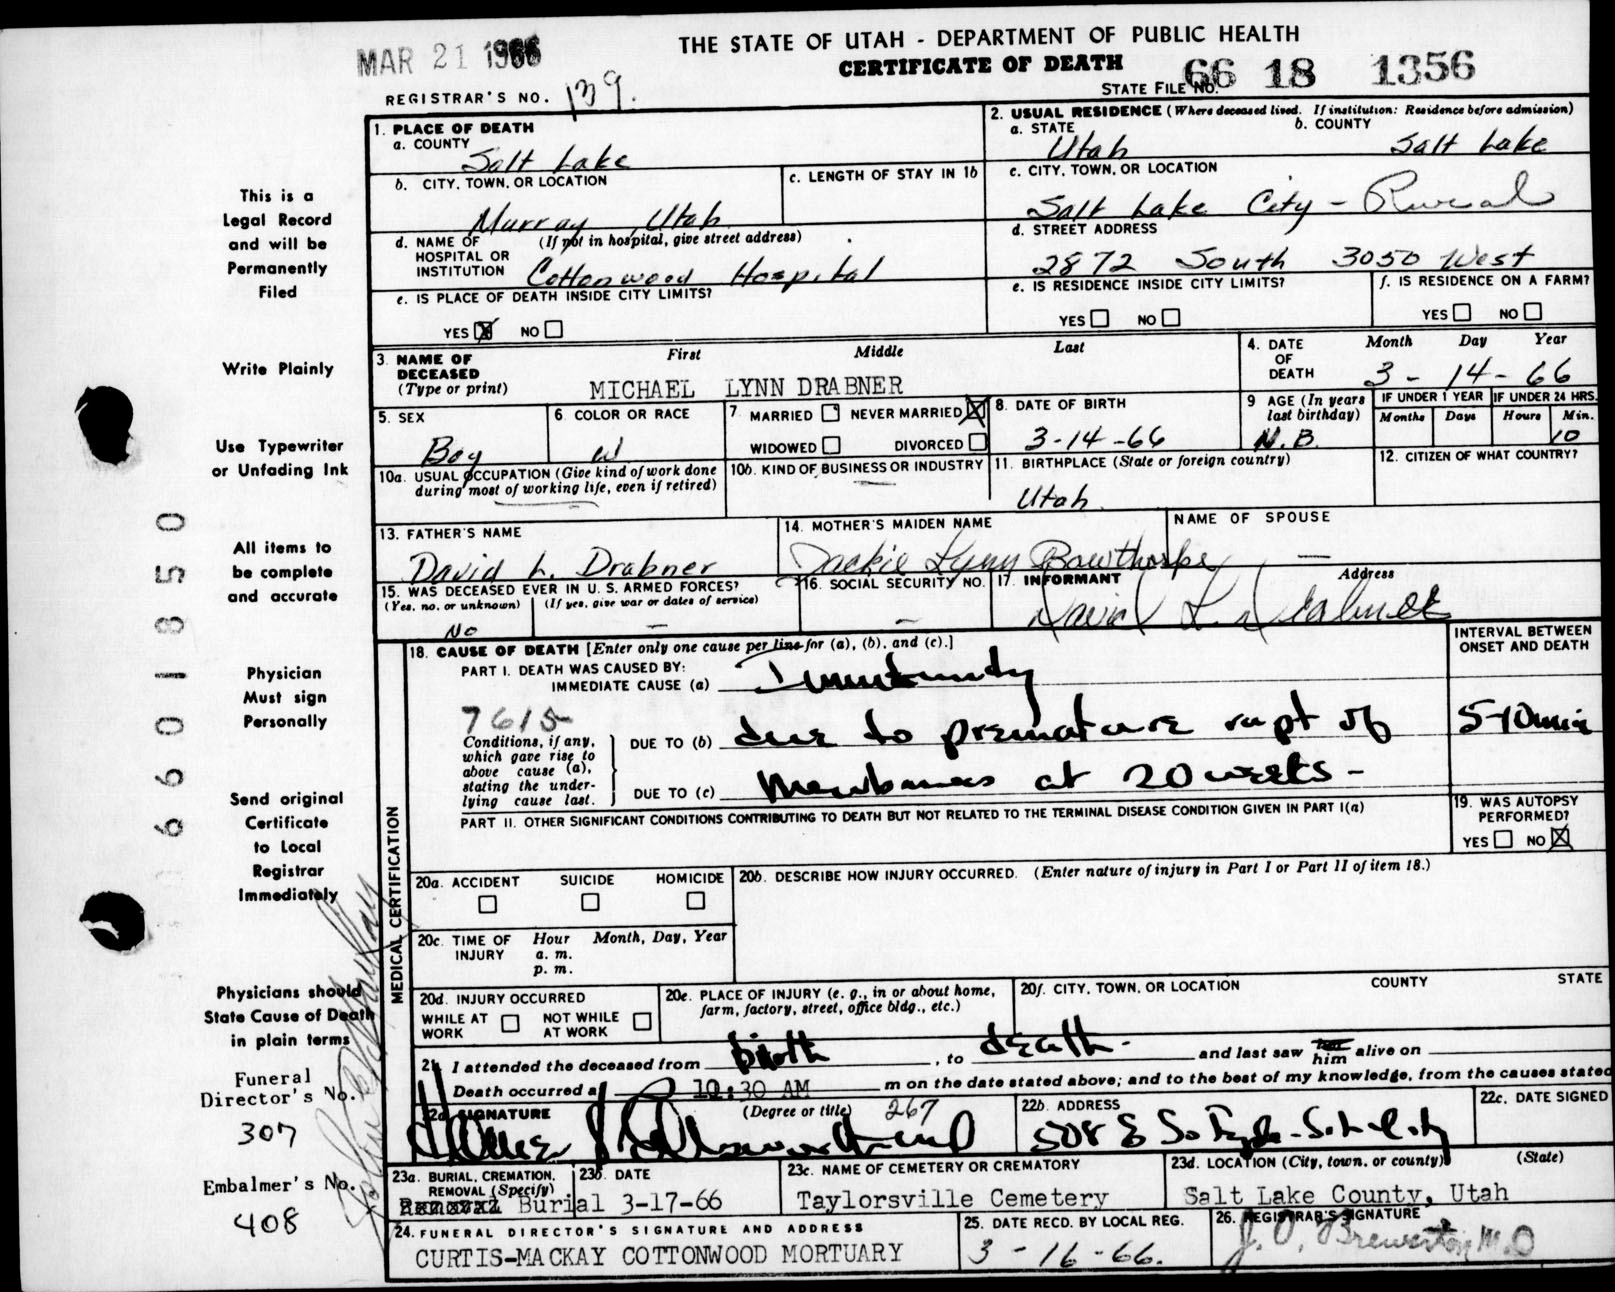 MAR 21 1966
THE STATE OF UTAH - DEPARTMENT OF PUBLIC HEALTH
CERTIFICATE OF DEATH
STATE FILE NO. 66 18 1356
REGISTRAR'S NO. 139.
This is a
Legal Record
and will be
Permanently
Filed
Write Plainly
Use Typewriter
or Unfading Ink
All items to
be complete
and accurate
Physician
Must sign
Personally
Send original
Certificate
to Local
Registrar
Immediately
Physicians should
State Cause of Death
in plain terms
Funeral
Director's No.
307
Embalmer's No.
408
660180
1. PLACE OF DEATH
a. COUNTY
Salt Lake
b. CITY, TOWN, OR LOCATION
Murray, Utah
c. LENGTH OF STAY IN 1b
d. NAME OF HOSPITAL OR INSTITUTION (If not in hospital, give street address)
Cottonwood Hospital
e. IS PLACE OF DEATH INSIDE CITY LIMITS?
YES X NO
2. USUAL RESIDENCE (Where deceased lived. If institution: Residence before admission)
a. STATE b. COUNTY
Utah Salt Lake
c. CITY, TOWN, OR LOCATION
Salt Lake City - Rural
d. STREET ADDRESS
2872 South 3050 West
e. IS RESIDENCE INSIDE CITY LIMITS?
YES NO
f. IS RESIDENCE ON A FARM?
YES NO
3. NAME OF DECEASED (Type or print)
First Middle Last
MICHAEL LYNN DRABNER
4. DATE OF DEATH Month Day Year
3 - 14 - 66
5. SEX
Boy
6. COLOR OR RACE
W
7. MARRIED NEVER MARRIED X
WIDOWED DIVORCED
8. DATE OF BIRTH
3-14-66
9 AGE (In years last birthday)
N.B.
IF UNDER 1 YEAR
Months Days
IF UNDER 24 HRS.
Hours Min.
10
10a. USUAL OCCUPATION (Give kind of work done during most of working life, even if retired)
10b. KIND OF BUSINESS OR INDUSTRY
11. BIRTHPLACE (State or foreign country)
Utah
12. CITIZEN OF WHAT COUNTRY?
13. FATHER'S NAME
David L. Drabner
14. MOTHER'S MAIDEN NAME
Jackie Lynn Bawthorpe
NAME OF SPOUSE
—
15. WAS DECEASED EVER IN U. S. ARMED FORCES?
(Yes, no, or unknown) (If yes, give war or dates of service)
No —
16. SOCIAL SECURITY NO.
—
17. INFORMANT Address
David L. Drabner
18. CAUSE OF DEATH [Enter only one cause per line for (a), (b), and (c).]
PART I. DEATH WAS CAUSED BY:
IMMEDIATE CAUSE (a) Immaturity
7615
Conditions, if any, which gave rise to above cause (a), stating the underlying cause last.
DUE TO (b) due to premature rupt of
DUE TO (c) Membranes at 20 weeks -
INTERVAL BETWEEN ONSET AND DEATH
5-10 min
PART II. OTHER SIGNIFICANT CONDITIONS CONTRIBUTING TO DEATH BUT NOT RELATED TO THE TERMINAL DISEASE CONDITION GIVEN IN PART I(a)
19. WAS AUTOPSY PERFORMED?
YES NO X
MEDICAL CERTIFICATION
20a. ACCIDENT SUICIDE HOMICIDE
20b. DESCRIBE HOW INJURY OCCURRED. (Enter nature of injury in Part I or Part II of item 18.)
20c. TIME OF INJURY Hour Month, Day, Year
a. m.
p. m.
20d. INJURY OCCURRED
WHILE AT WORK NOT WHILE AT WORK
20e. PLACE OF INJURY (e. g., in or about home, farm, factory, street, office bldg., etc.)
20f. CITY, TOWN, OR LOCATION COUNTY STATE
21. I attended the deceased from birth, to death - and last saw him alive on
Death occurred at 10:30 AM m on the date stated above; and to the best of my knowledge, from the causes stated
22a SIGNATURE (Degree or title) 267
22b. ADDRESS
508 E So Temple
22c. DATE SIGNED
23a. BURIAL, CREMATION, REMOVAL (Specify)
Burial
23b. DATE
3-17-66
23c. NAME OF CEMETERY OR CREMATORY
Taylorsville Cemetery
23d. LOCATION (City, town, or county) (State)
Salt Lake County, Utah
24. FUNERAL DIRECTOR'S SIGNATURE AND ADDRESS
CURTIS-MACKAY COTTONWOOD MORTUARY
25. DATE RECD. BY LOCAL REG.
3 - 16 - 66.
26. REGISTRAR'S SIGNATURE
J. O. Brewerton, M.D